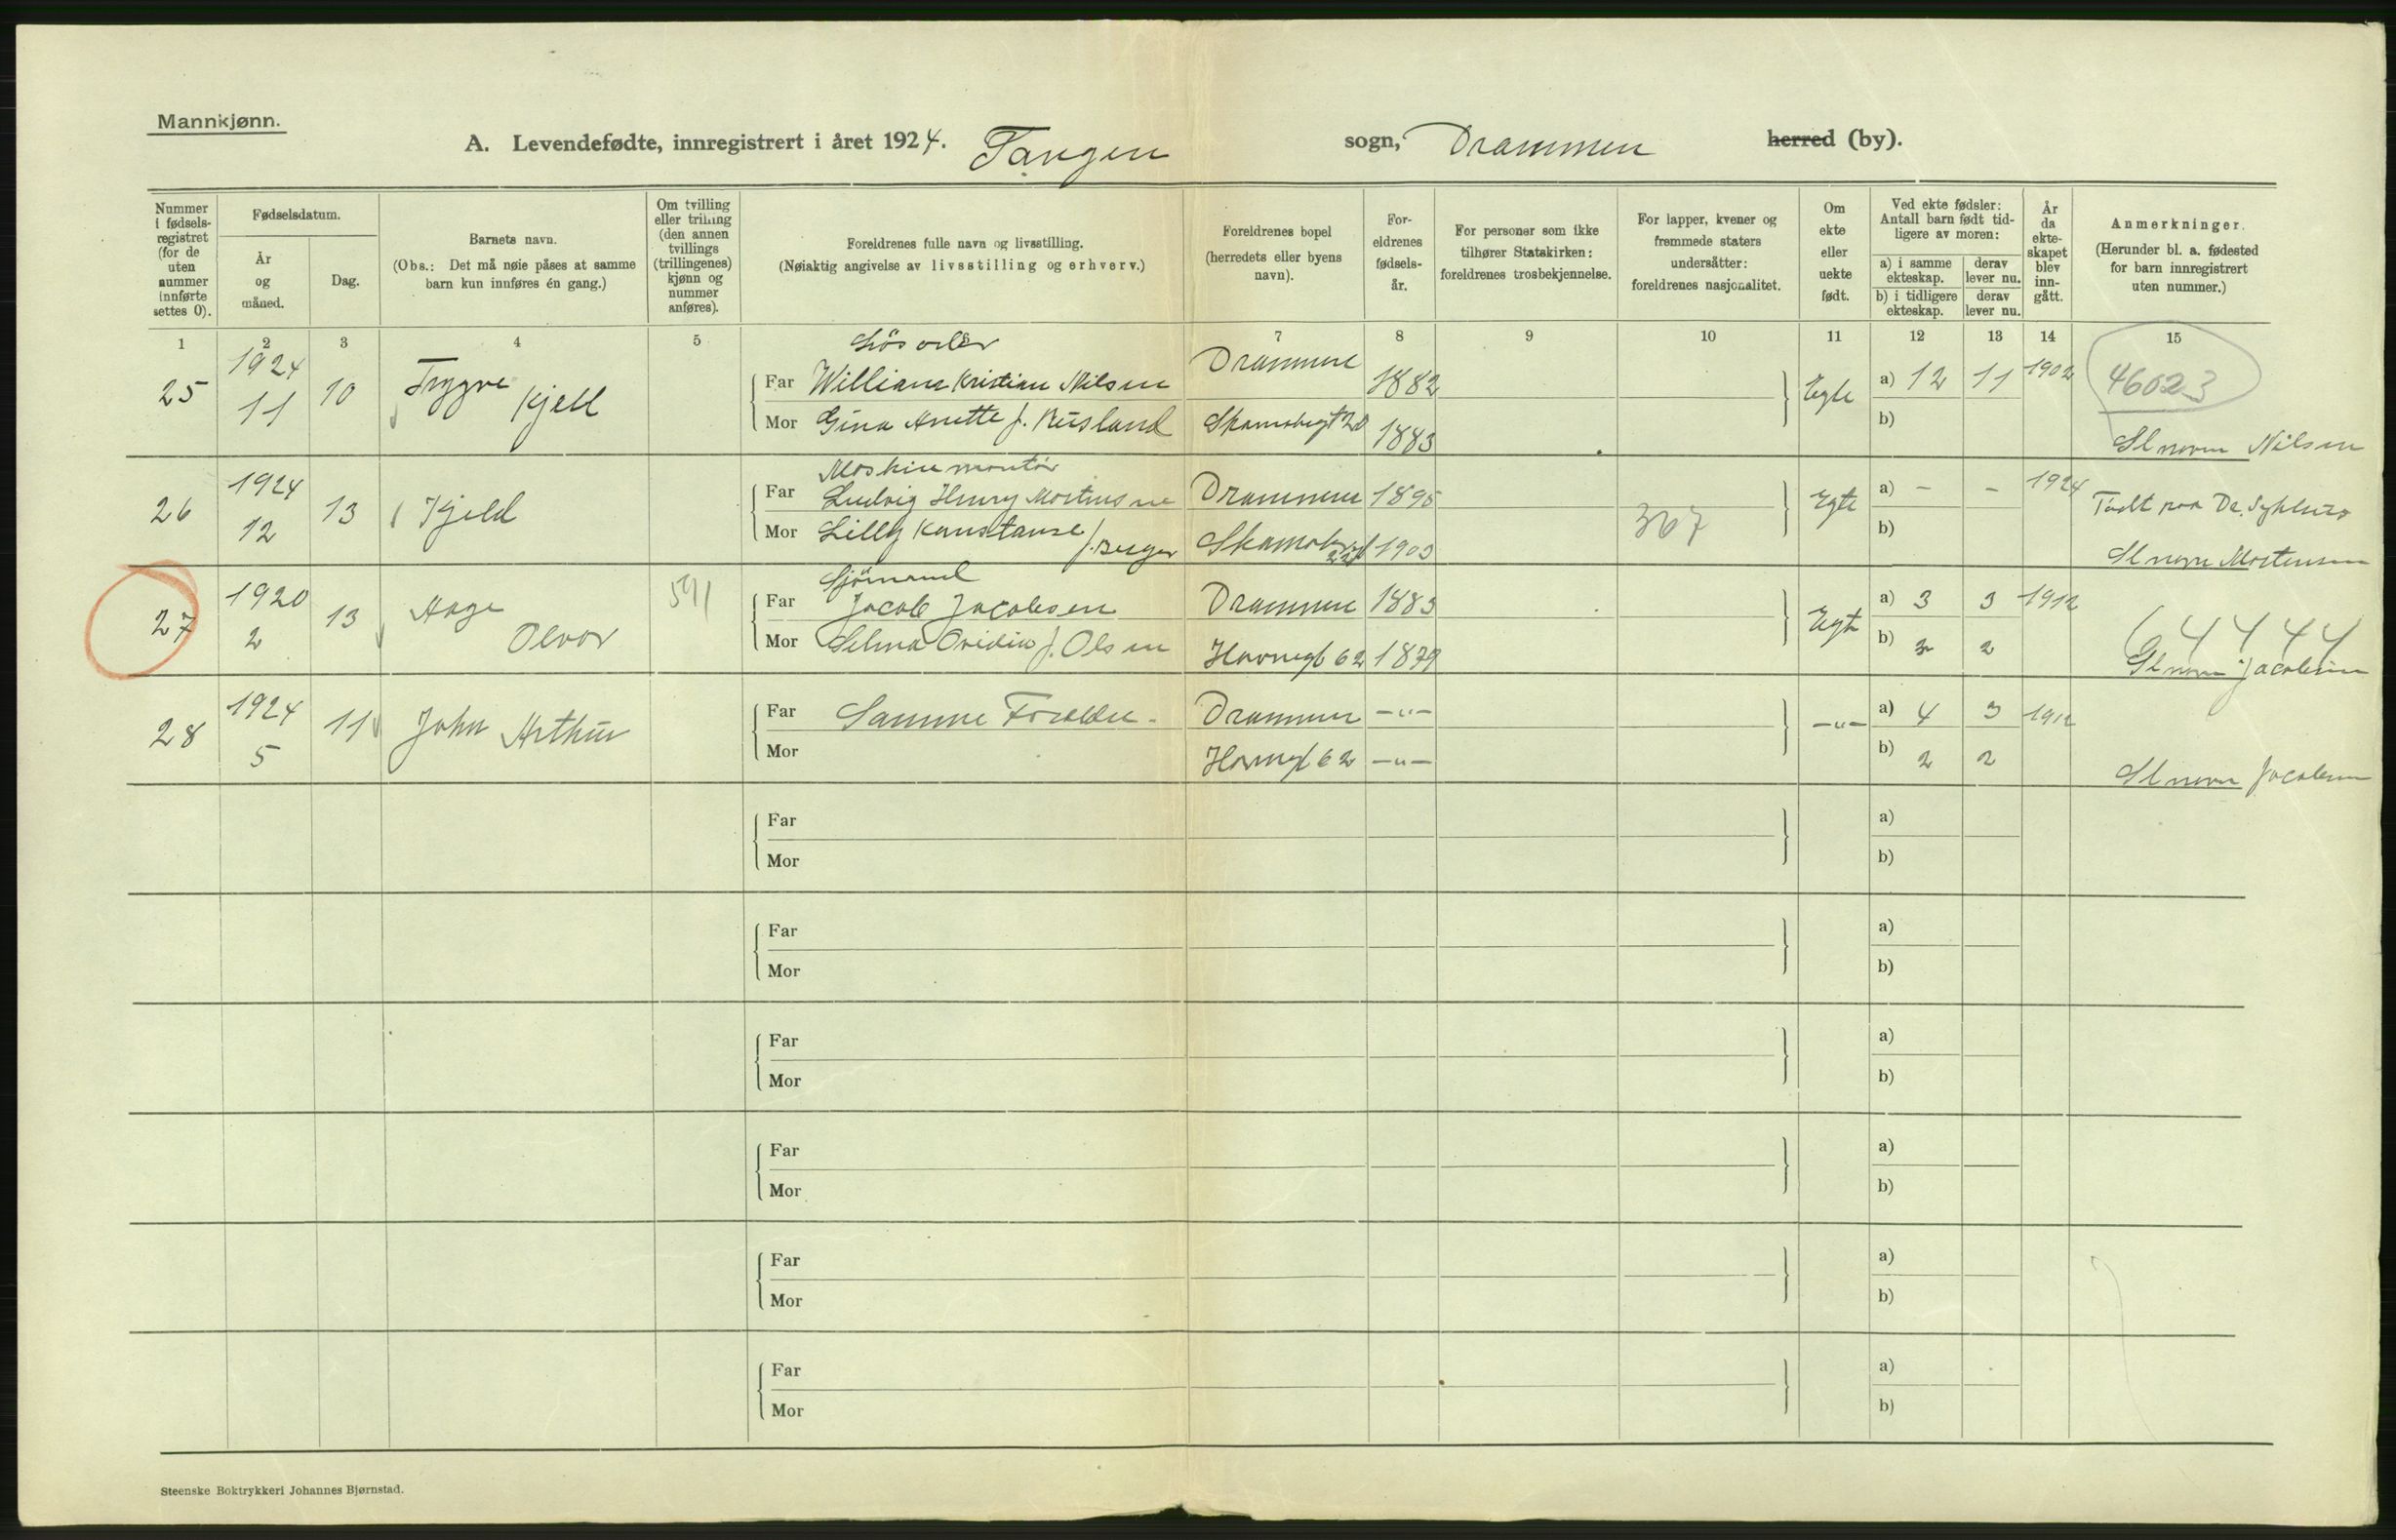 Mannkjønn.
A. Levendefødte, innregistrert i året 1924. Tangen sogn, Drammen herred (by).
Nummer i fødsels- registret (for de uten nummer innførte settes 0).
Fødselsdatum.
År og måned.
Dag.
Barnets navn.
(Obs.: Det må nøie påses at samme barn kun innføres én gang.)
Om tvilling eller trilling (den annen tvillings (trillingenes) kjønn og nummer anføres).
Foreldrenes fulle navn og livsstilling.
(Nøiaktig angivelse av livsstilling og erhverv.)
Foreldrenes bopel
(herredets eller byens navn).
For- eldrenes fødsels- år.
For personer som ikke tilhører Statskirken: foreldrenes trosbekjennelse.
For lapper, kvener og fremmede staters undersåtter: foreldrenes nasjonalitet.
Om ekte eller uekte født.
Ved ekte fødsler: Antall barn født tid- ligere av moren:
a) i samme ekteskap.
derav lever nu.
b) i tidligere ekteskap.
derav lever nu.
År da ekte- skapet blev inn- gått.
Anmerkninger.
(Herunder bl. a. fødested for barn innregistrert uten nummer.)
1 2 3 4 5 7 8 9 10 11 12 13 14 15
25 1924 11 10 Trygve Kjell
Far William Kristian Nilsen Drammen 1882
Mor Gina Anette f. Rusland 1883
Egte a) 12 11 1902
b)
46023
Nilsen
26 1924 12 13 Kjeld
Maskinmontör
Far Ludvig Henry Mortensen Drammen 1895
Mor Lilly Konstanse f. Berger 1903
367
Egte a) - - 1924
b)
Födt paa Dr. Sykehus
Mortensen
27 1920 2 13 Aage Olvar
591
Sjömand
Far Jacob Jacobsen Drammen 1883
Mor Selma Ovidia f. Olsen Havnegt 62 1879
Egte a) 3 3 1912
b) 2
64444
Jacobsen
28 1924 5 11 John Arthur
Far Samme Forældre. Drammen —„—
Mor Havnegt 62 —„—
—„— a) 4 3 1912
b) 2 2
Jacobsen
Far
Mor
a)
b)
Far
Mor
a)
b)
Far
Mor
a)
b)
Far
Mor
a)
b)
Far
Mor
a)
b)
Far
Mor
a)
b)
Steenske Boktrykkeri Johannes Bjørnstad.